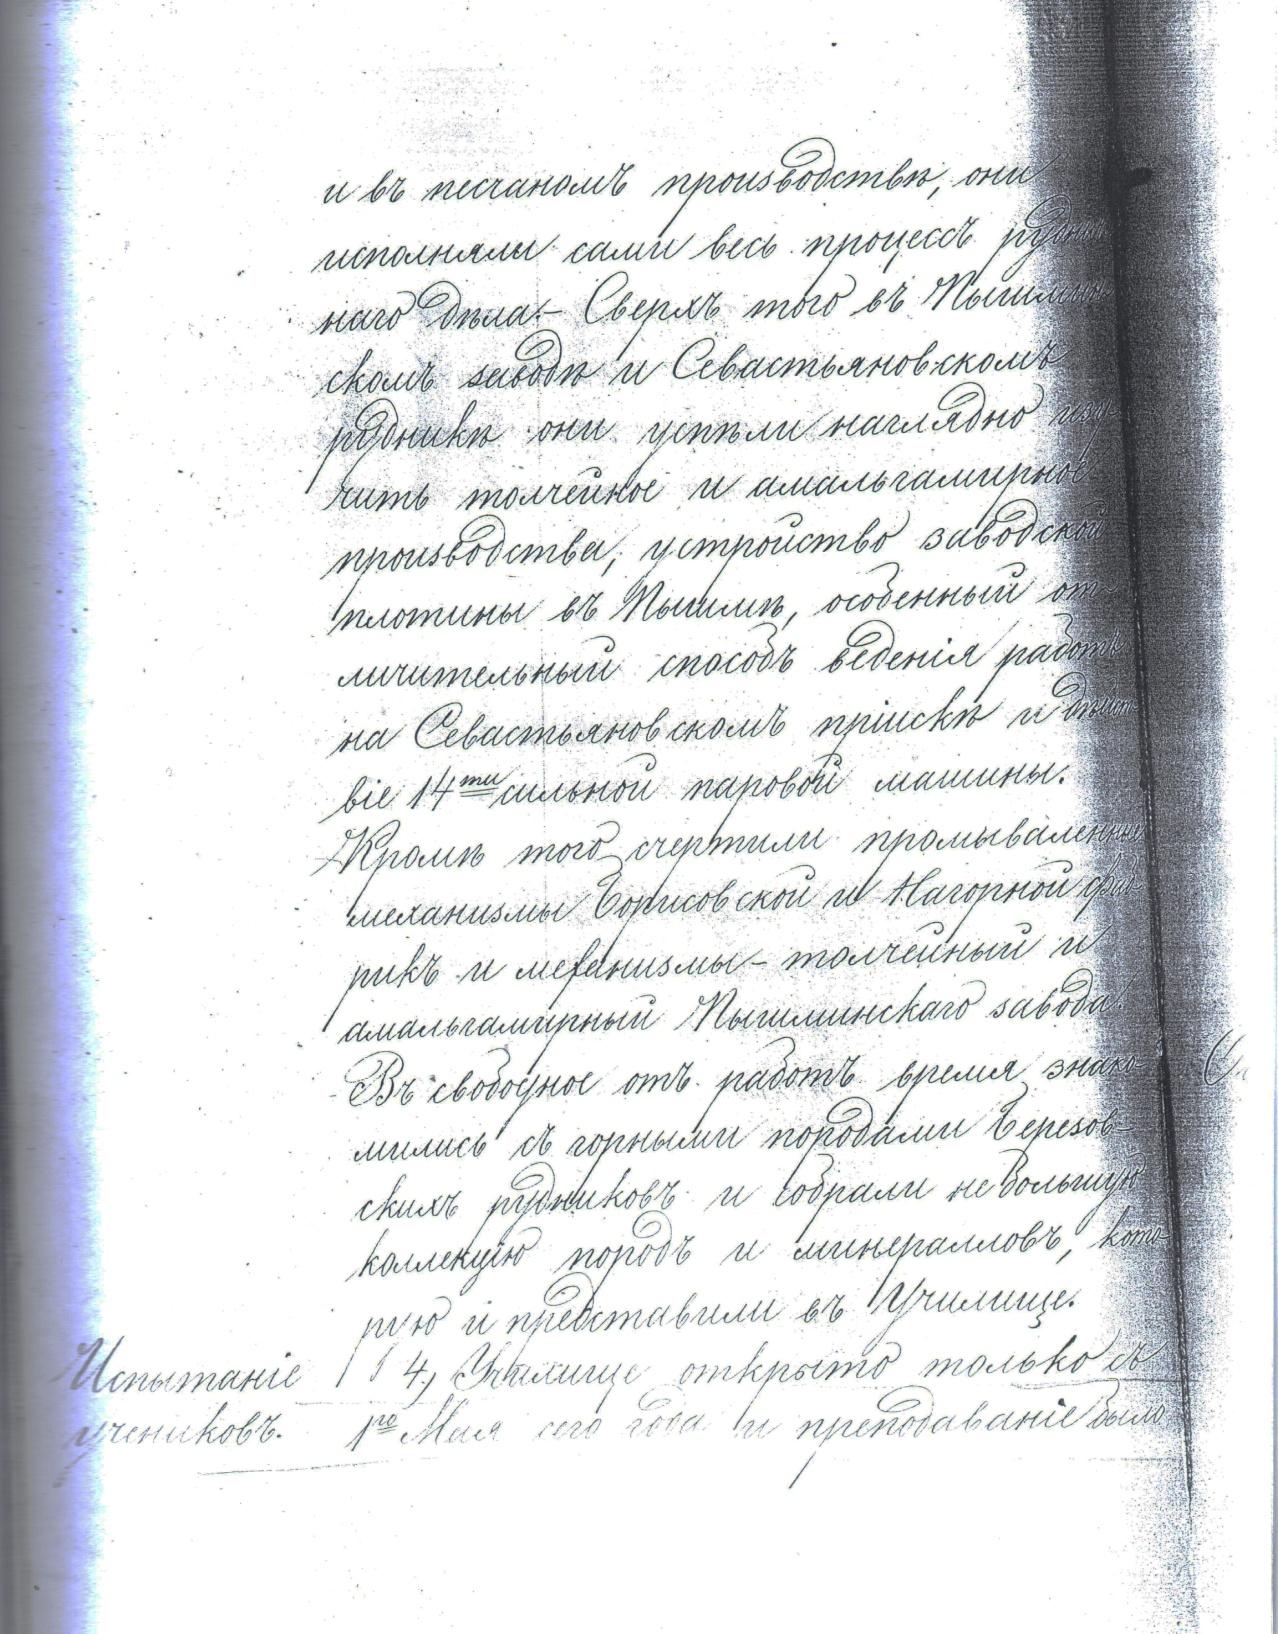 и въ песчаномъ производствѣ, они
исполняли сами весь процессъ руднич
наго дѣла.- Сверхъ того въ Пышмин
скомъ заводѣ и Севастьяновскомъ
рудникѣ они успѣли наглядно изу-
чить толчейное и амальгамирное
производства, устройство заводской
плотины въ Пышмѣ, особенный от-
личительный способъ веденія работъ
на Севастьяновскомъ пріискѣ и дѣйст
віе 14ти сильной паровой машины.
Кромѣ того счертили промываленные
механизмы Борисовской и Нагорной фаб-
рикъ и механизмы - толчейный и
амальгамирный Пышминскаго завода
Въ свободное отъ работъ время знако-
мились съ горными породами Березов-
скихъ рудниковъ и собрали небольшую
коллекцію породъ и минералловъ, кото
рую и представили въ Училище.
Испытаніе
учениковъ.
4, Училище открыто только съ
1го Мая сего года и преподаваніе было